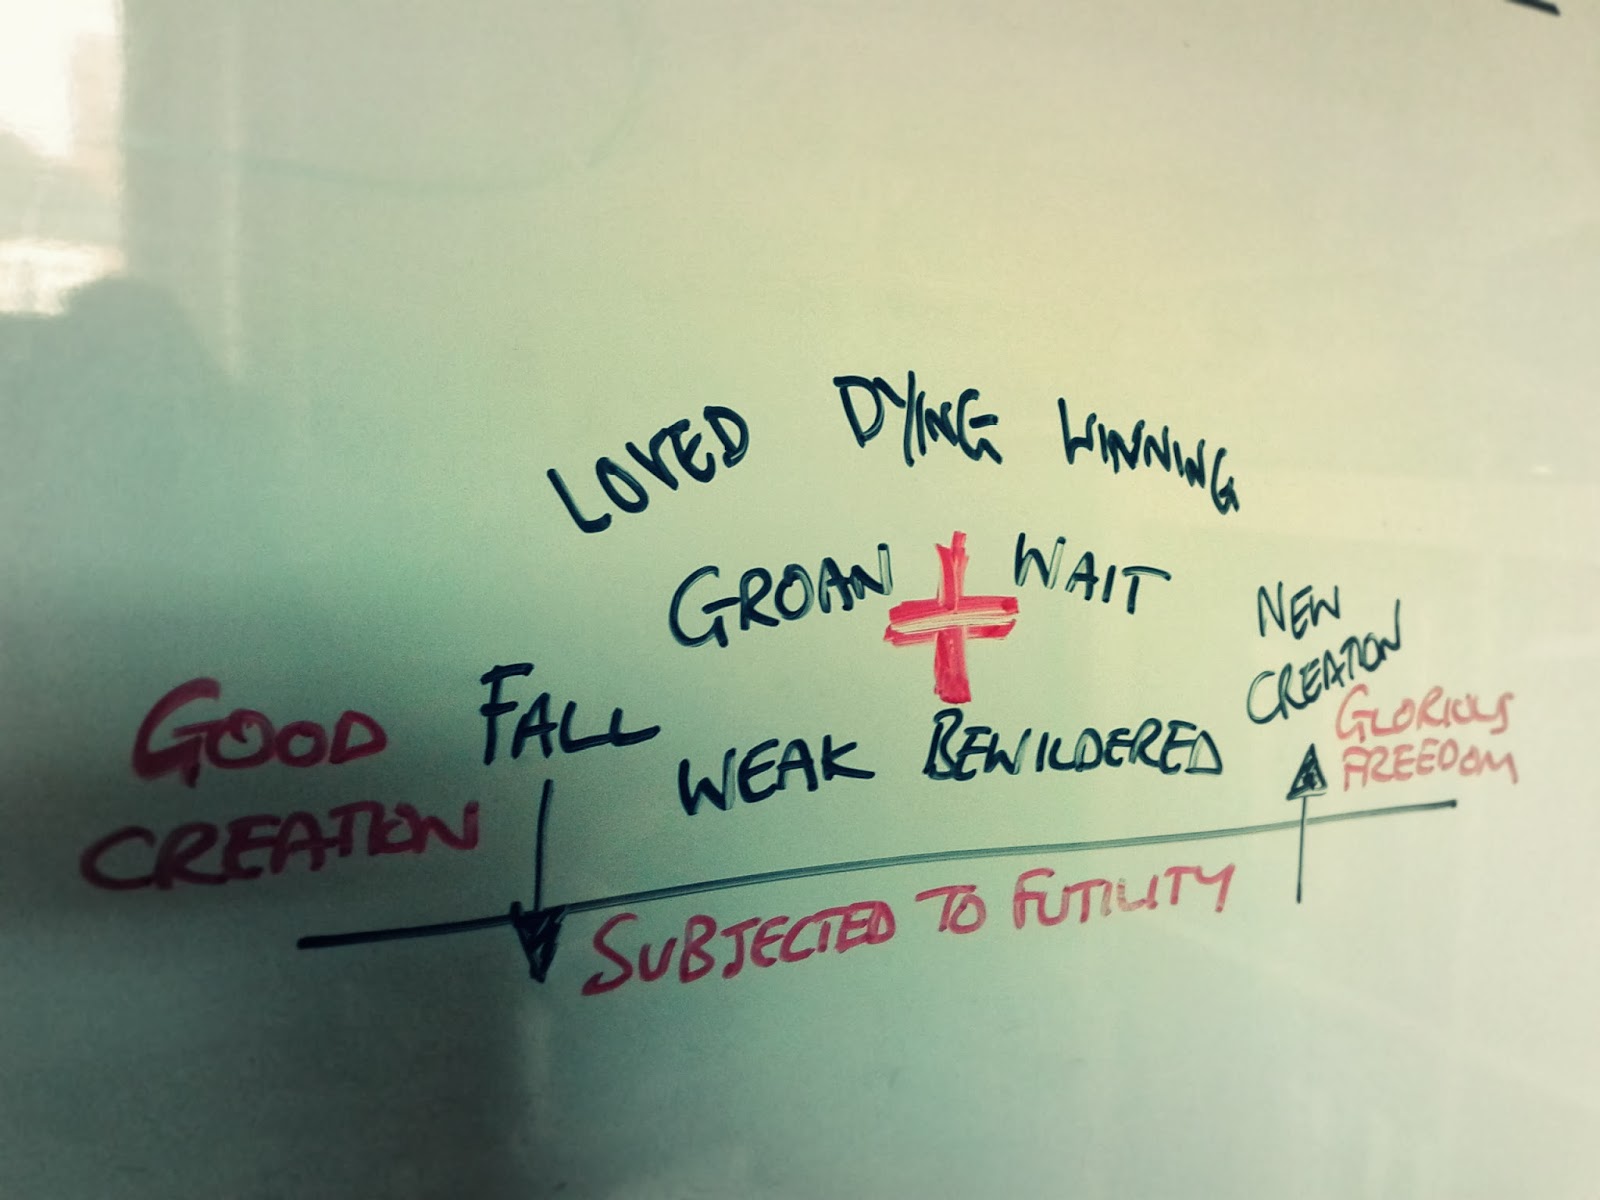 LOVED DYING WINNING
GROAN WAIT
NEW
CREATION
GLORIOUS
FREEDOM
GOOD
CREATION
FALL
WEAK BEWILDERED
SUBJECTED TO FUTILITY